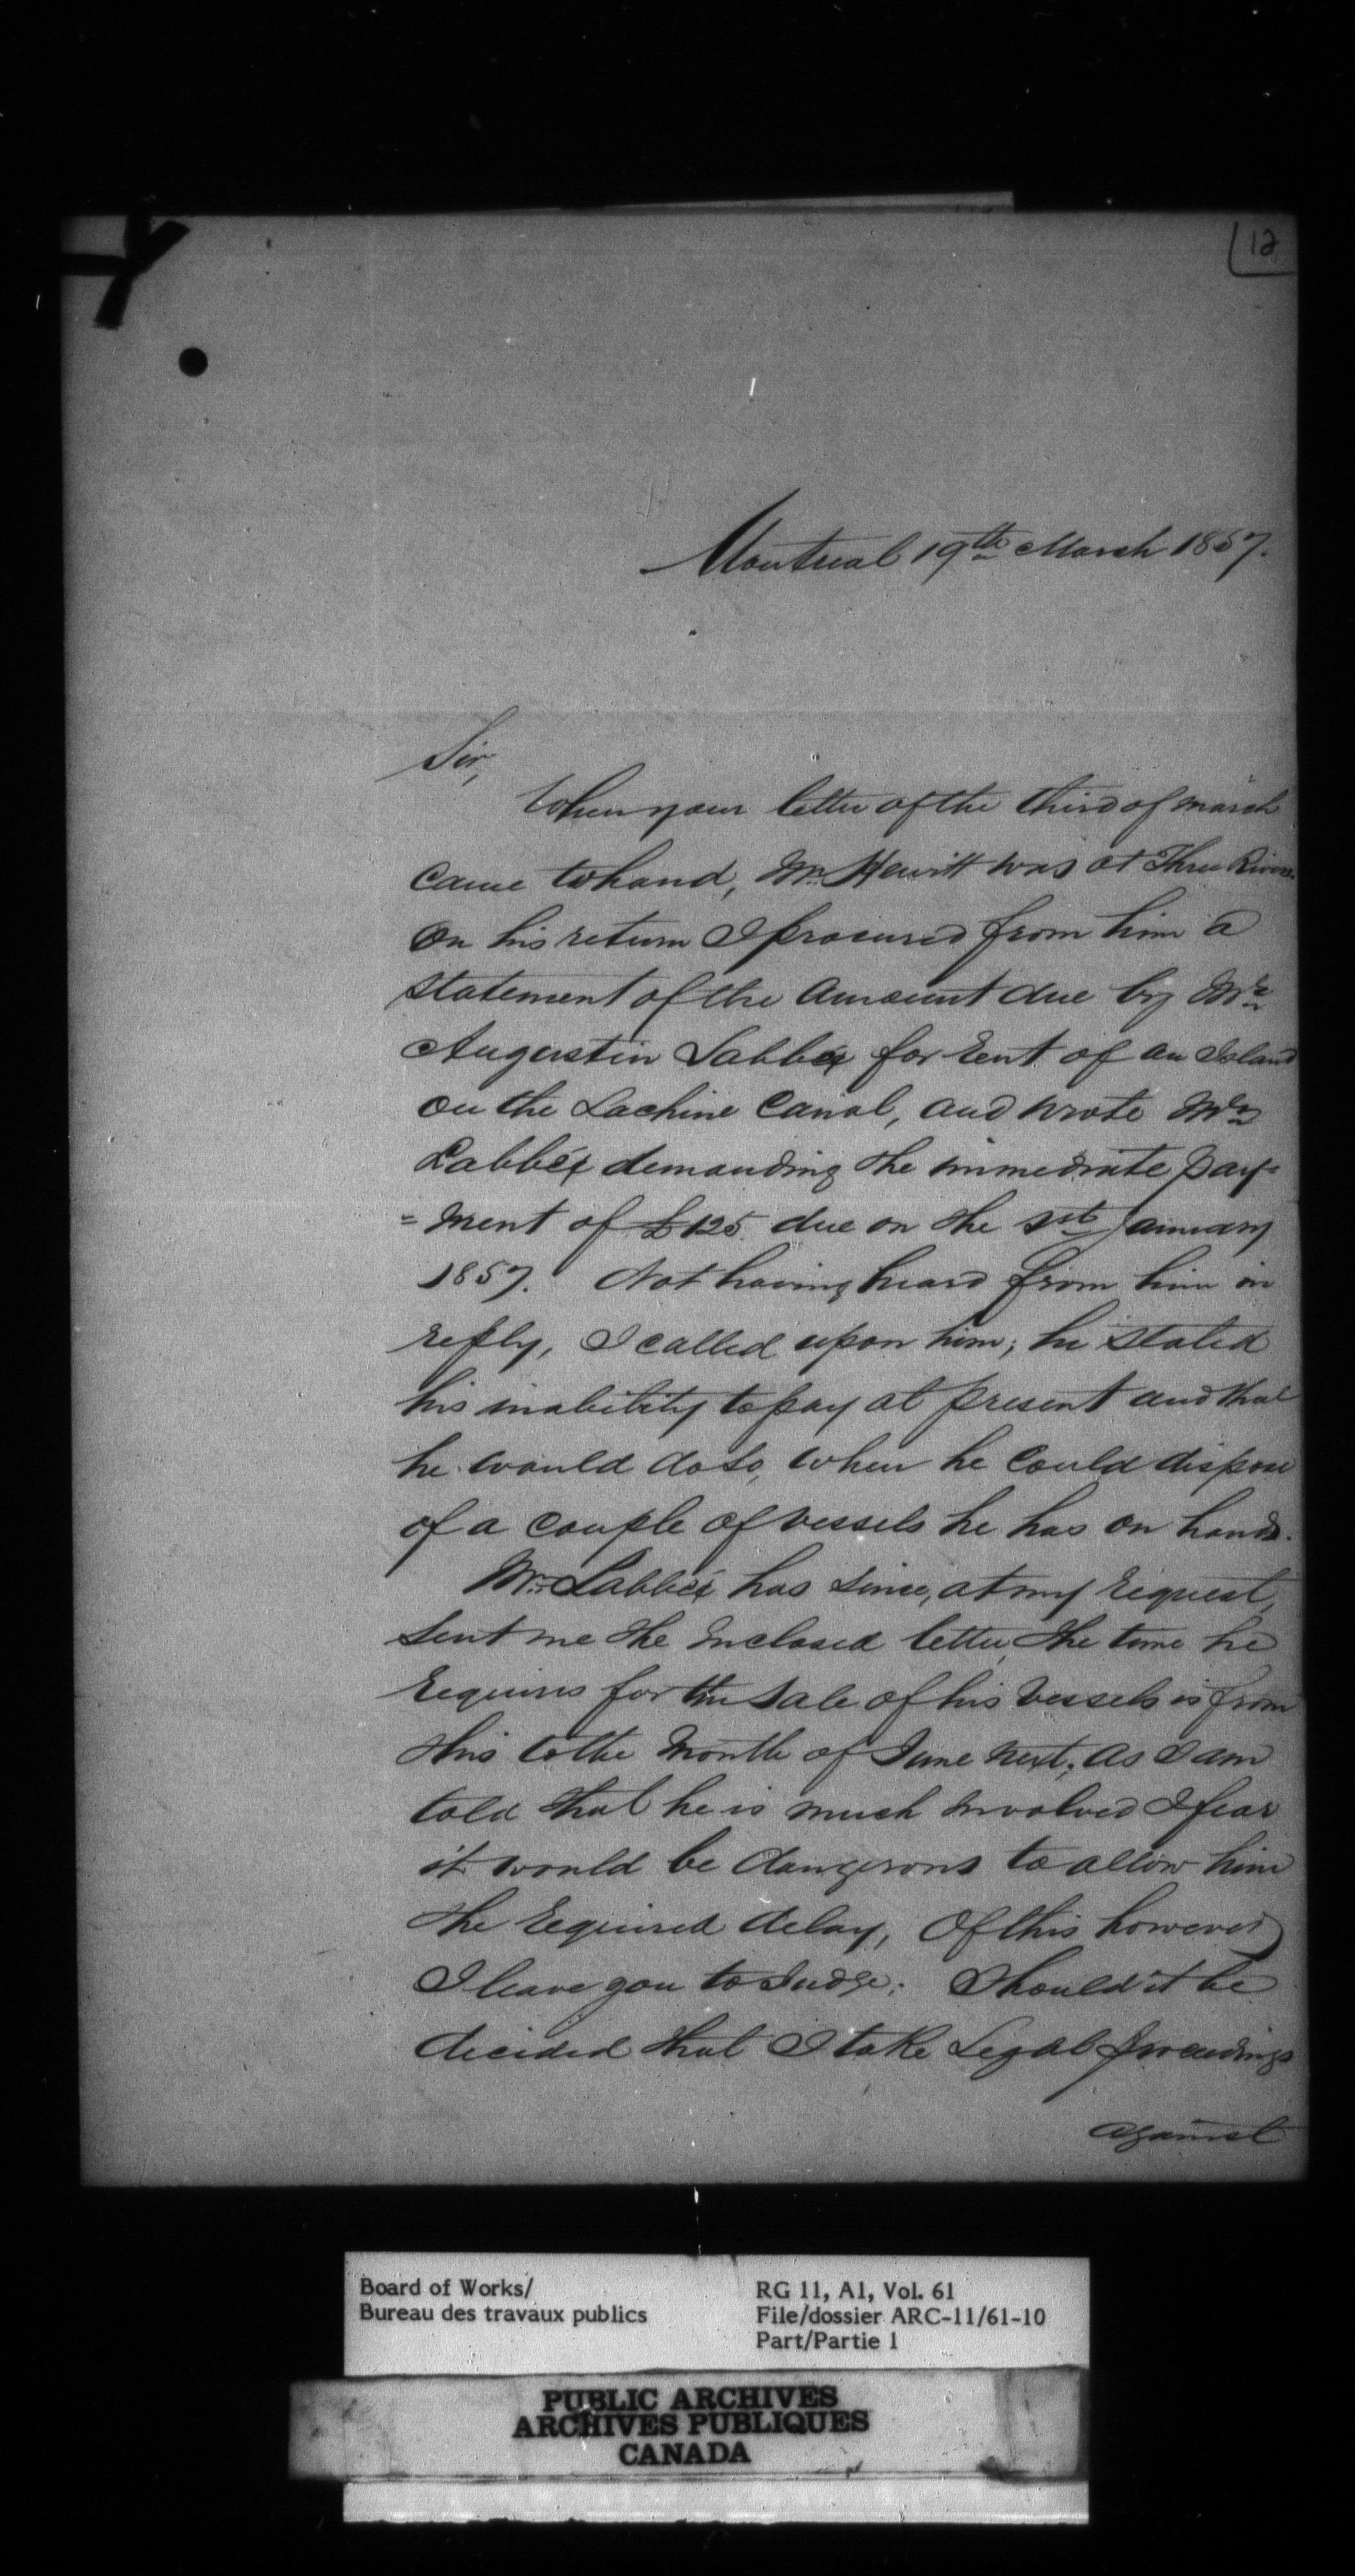 12
Montreal 19th March 1857.
Sir,
When your letter of the third of march
came to hand, Mr. Hewitt was at Three Rivers.
On his return I procured from him a
statement of the amount due by Mr
Augustin for rent of an Island
on the Lachine Canal, and wrote Mr
demanding the immediate pay=
=ment of £125 due on the 1st January
1857. Not having heard from him in
reply, I called upon him; he stated
his inability to pay at present and that
he would do so, when he could dispose
of a couple of vessels he has on hands.
Mr. has since, at my request,
sent me the inclosed letter, the time he
requires for the sale of his vessels is from
this to the month of June next; as I am
told that he is much involved I fear
it would be dangerous to allow him
the required delay, Of this however
I leave you to Judge; Should it be
decided that I take Legal proceedings
against
Board of Works/
Bureau des travaux publics
RG 11, A1, Vol. 61
File/dossier ARC-11/61-10
Part/Partie 1
PUBLIC ARCHIVES
ARCHIVES PUBLIQUES
CANADA